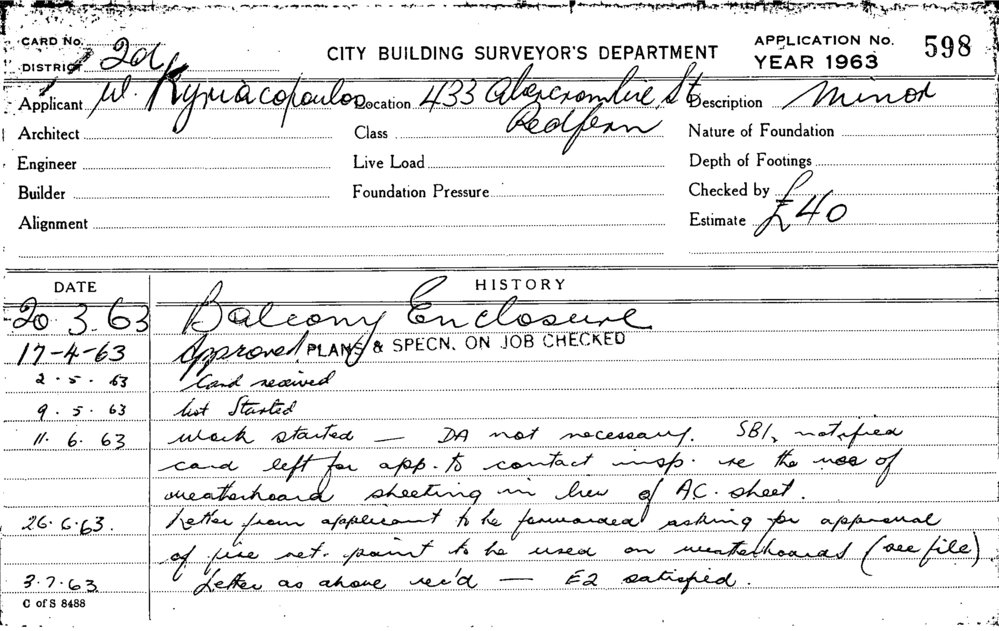 CARD No. CITY BUILDING SURVEYOR'S DEPARTMENT APPLICATION No. 598
DISTRICT 2a YEAR 1963
Applicant W. Kyriacopoulos Location 433 Abercrombie St Description Minor
Architect Class Redfern Nature of Foundation
Engineer Live Load Depth of Footings
Builder Foundation Pressure Checked by
Alignment Estimate £40
DATE HISTORY
20.3.63 Balcony Enclosure
17-4-63 Approved PLANS & SPECN. ON JOB CHECKED
2.5.63 Card received
9.5.63 Not Started
11.6.63 Work started — DA not necessary. SBI, notified
card left for app. to contact insp. re the use of
weatherboard sheeting in lieu of AC. sheet.
26.6.63. Letter from applicant to be forwarded asking for approval
of fire ret. paint to be used on weatherboards (see file)
3.7.63 Letter as above rec'd — E2 satisfied.
C of S 8488